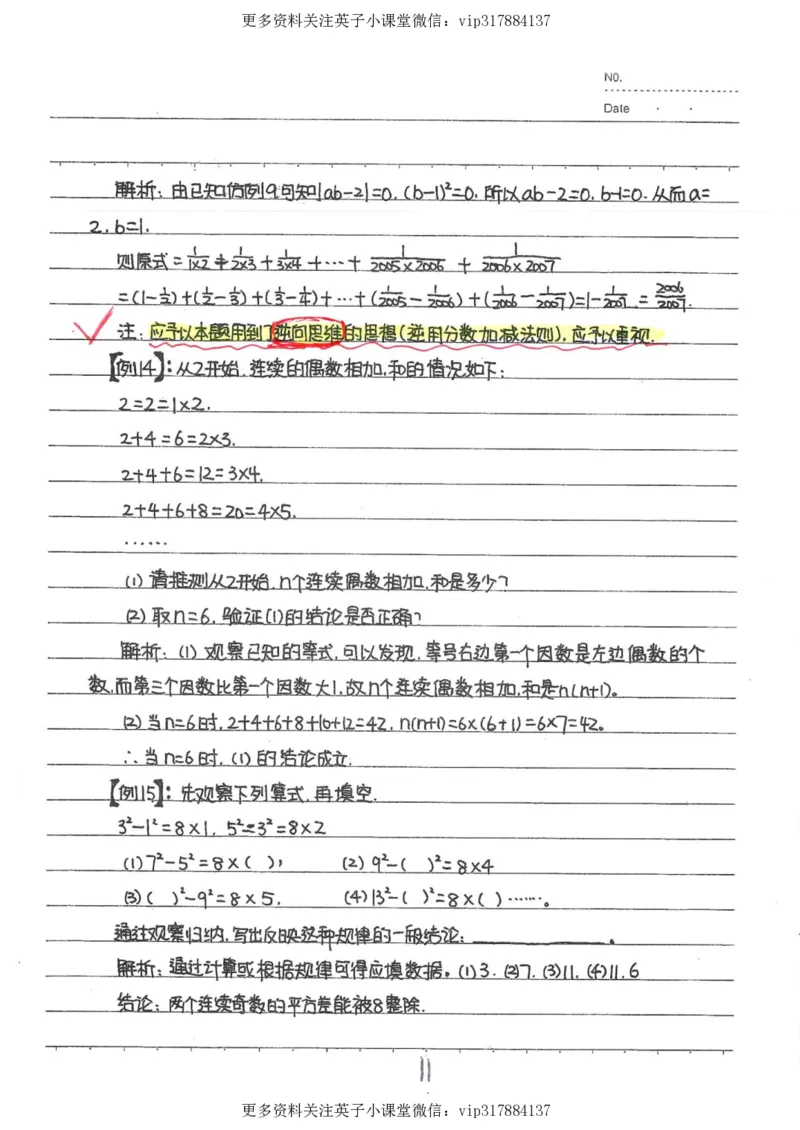 更多资料关注英子小课堂微信：vip317884137
NO.
Date · ·
解析：由已知仿例9可知|ab-2|=0，(b-1)²=0，所以ab-2=0，b-1=0，从而a=
2，b=1.
则原式=1/1×2+1/2×3+1/3×4+…+1/2005×2006+1/2006×2007
=(1-1/2)+(1/2-1/3)+(1/3-1/4)+…+(1/2005-1/2006)+(1/2006-1/2007)=1-1/2007=2006/2007.
注：应予以本题用到了逆向思维的思想(逆用分数加减法则)，应予以重视.
【例14】：从2开始，连续的偶数相加，和的情况如下：
2=2=1×2.
2+4=6=2×3.
2+4+6=12=3×4.
2+4+6+8=20=4×5.
……
(1) 请推测从2开始，n个连续偶数相加，和是多少？
(2) 取n=6，验证(1)的结论是否正确？
解析：(1) 观察已知的等式，可以发现，等号右边第一个因数是左边偶数的个
数，而第二个因数比第一个因数大1，故n个连续偶数相加，和是n(n+1)。
(2) 当n=6时，2+4+6+8+10+12=42，n(n+1)=6×(6+1)=6×7=42。
∴当n=6时，(1)的结论成立.
【例15】：先观察下列算式，再填空.
3²-1²=8×1，5²-3²=8×2
(1) 7²-5²=8×( )； (2) 9²-( )²=8×4
(3) ( )²-9²=8×5. (4) 13²-( )²=8×( )……。
通过观察归纳，写出反映这种规律的一般结论：____________。
解析：通过计算或根据规律可得应填数据。(1)3. (2)7. (3)11. (4)11，6
结论：两个连续奇数的平方差能被8整除.
11
更多资料关注英子小课堂微信：vip317884137